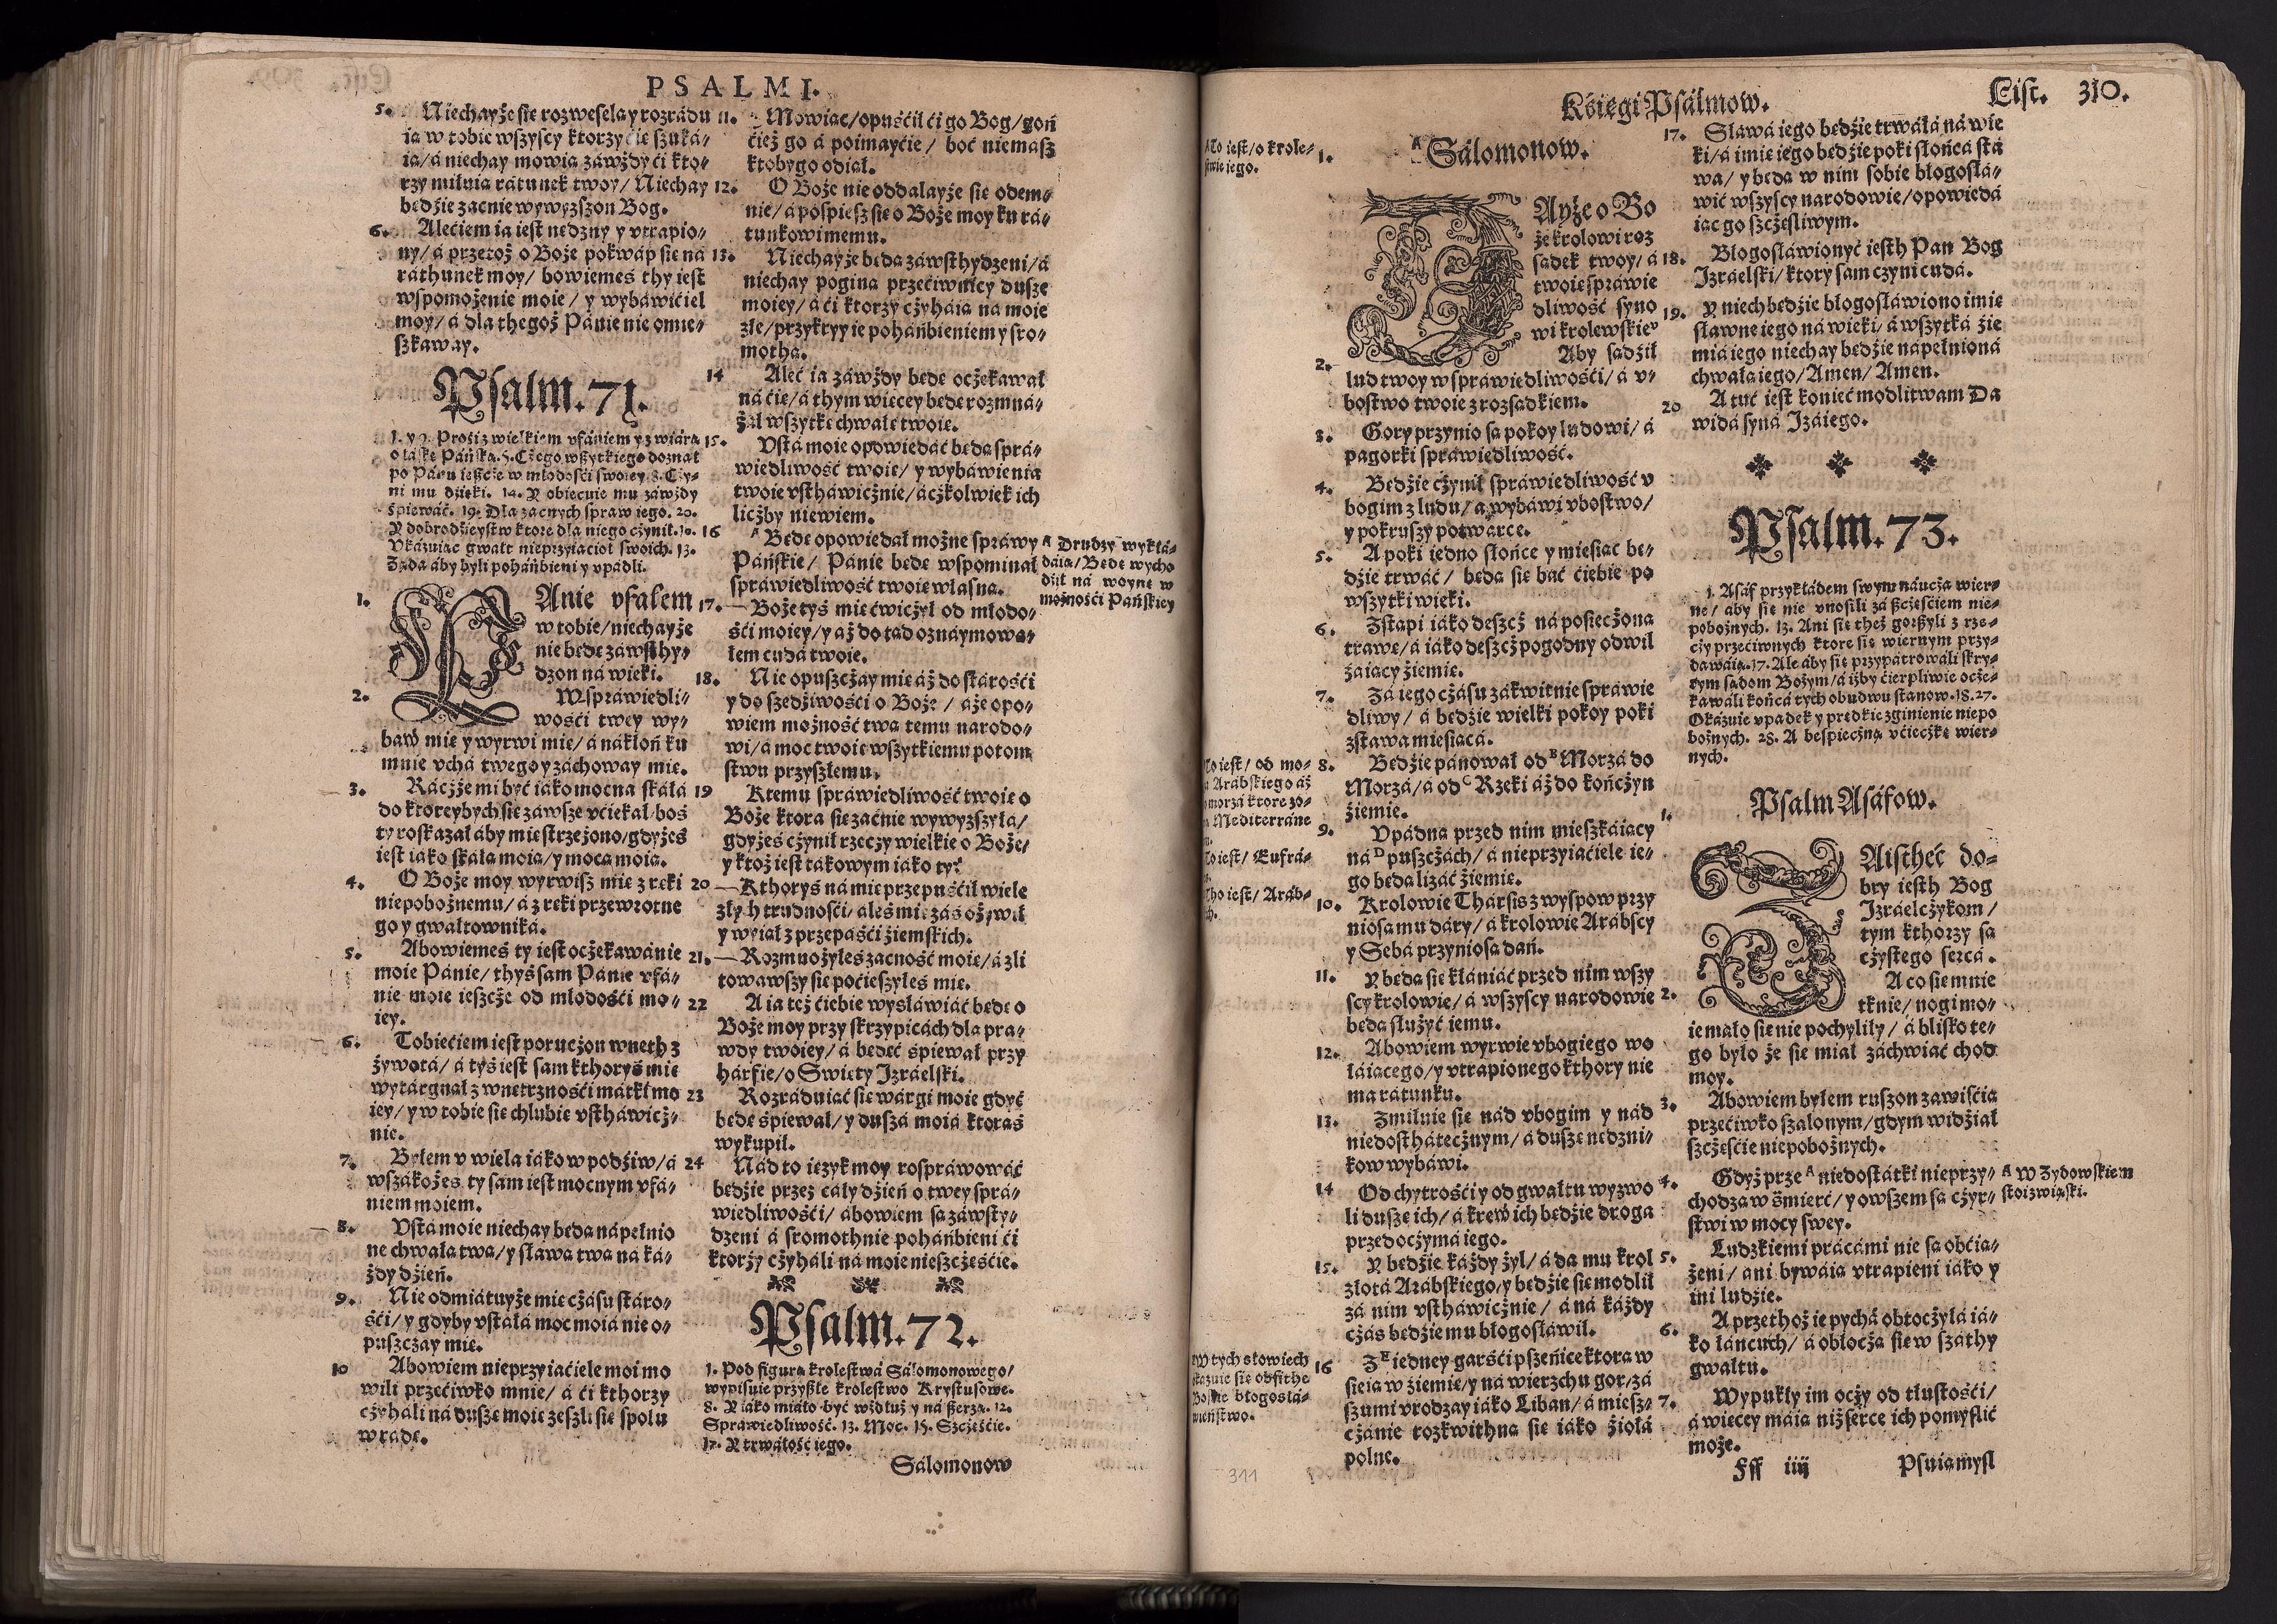 PSALMI.
5. Niechayże się rozweselą y rozrádu
ią w tobie wszyscy ktorzy cie szuká-
ią/ á niechay mowią záwżdy ći kto-
rzy miłuią rátunek twoy/ Niechay
będźie zacnie wywyższon Bog.
6. Alećiem ia iest nędzny y vtrapio-
ny/ á przetoż o Boże pokwap się ná
ráthunek moy/ bowiemeś thy iest
wspomożenie moie/ y wybáwićiel
moy/ á dla thegoż Pánie nie omie-
szkaway.
Psalm. 71.
1. y 9. Prośi z wielkiem vfániem y z wiárą
o łáskę Páńską. 5. Cżego wszytkiego doznał
po Pánu ieszcże w młodośći swoiey. 8. Cży-
ni mu dźięki. 14. Y obiecuie mu záwżdy
śpiewáć. 19. Dla zacnych spraw iego. 20.
Y dobrodźieystw ktore dla niego cżynił. 10.
Vkázuiąc gwałt nieprzyiaćioł swoich. 13.
Żąda áby byli poháńbieni y vpádli.
1. PAnie vfałem
w tobie/ niechayże
nie będę záwsthy-
dzon ná wieki.
2. W spráwiedli-
wośći twey wy-
báw mię y wyrwi mię/ á nákłoń ku
mnie vchá twego y záchoway mię.
3. Rácżże mi być iáko mocna skáłá
do ktoreybych się záwsze vćiekał/ boś
ty roskazał áby mię strzeżono/ gdyżeś
iest iáko skáła moiá/ y mocą moią.
4. O Boże moy wyrwisz mię z ręki
niepobożnemu/ á z ręki przewrotne
go y gwałtowniká.
5. Abowiemeś ty iest ocżekawánie
moie Pánie/ thyś sam Pánie vfá-
nie moie ieszcże od młodośći mo-
iey.
6. Tobiećiem iest porucżon wneth z
żywotá/ á tyś iest sam kthoryś mię
wytárgnął z wnętrznośći mátki mo
iey/ y w tobie się chlubię vstháwicż-
nie.
7. Byłem v wiela iáko w podźiw/ á
wszákożeś ty sam iest mocnym vfá-
niem moiem.
8. Vstá moie niechay będą nápełnio
ne chwałą twą/ y sławą twą ná ká-
żdy dźień.
9. Nie odmiátuyże mię cżásu stáro-
śći/ y gdyby vstáłá moc moiá nie o-
puszcżay mię.
10 Abowiem nieprzyiaćiele moi mo
wili przećiwko mnie/ á ći kthorzy
cżyháli ná duszę moię zeszli się społu
w radę.
11. Mowiąc/ opuśćił ći go Bog/ goń
ćież go á poimayćie/ boć niemász
ktoby go odiął.
12. O Boże nie oddalayże się odem-
nie/ á pośpiesz się o Boże moy ku rá-
tunkowi memu.
13. Niechayże będą záwsthydzeni/ á
niechay poginą przećiwnicy dusze
moiey/ á ći ktorzy cżyháią na moie
złe/ przykryy ie poháńbieniem y sro-
mothą.
14 Aleć ia záwżdy będę ocżekawał
ná ćię/ á thym więcey będę rozmná-
żał wszytkę chwałę twoię.
15. Vstá moie opowiedáć będą sprá-
wiedliwość twoię/ y wybáwienia
twoie vstháwicżnie/ ácżkolwiek ich
licżby niewiem.
16 A Będę opowiedał możne spráwy
Páńskie/ Pánie będę wspominał
spráwiedliwość twoię własną.
A Drudzy wykłá-
dáią/ Będę wycho
dźił ná woynę w
możnośći Páńskiey
17. Boże tyś mię ćwicżył od młodo-
śći moiey/ y áż do tąd oznáymowa-
łem cudá twoie.
18. Nie opuszcżay mię áż do stárośći
y do szedźiwośći o Boże/ áże opo-
wiem możność twą temu narodo-
wi/ á moc twoię wszytkiemu potom
stwu przyszłemu.
19 Ktemu spráwiedliwość twoię o
Boże ktora się zacnie wywyższyłá/
gdyżeś cżynił rzecży wielkie o Boże/
y ktoż iest tákowym iáko ty?
20 Kthoryś ná mię przepuśćił wiele
złych trudnośći/ áleś mię zás ożywił
y wyiął z przepáśći źiemskich.
21. Rozmnożyłeś zacność moię/ á zli
towawszy się poćieszyłeś mię.
22 A ia też ćiebie wysłáwiáć będę o
Boże moy przy skrzypicách dla pra-
wdy twoiey/ á będęć śpiewał przy
hárfie/ o Swięty Izráelski.
23 Rozráduiąć się wárgi moie gdyć
będę śpiewał/ y duszá moiá ktorąś
wykupił.
24 Nád to ięzyk moy rospráwowáć
będźie przez cáły dźień o twey sprá-
wiedliwośći/ ábowiem są záwsty-
dzeni á sromothnie poháńbieni ći
ktorzy cżyháli ná moie nieszcżeśćie.
Psalm. 72.
1. Pod figurą krolestwá Sálomonowego/
wypisuie przyszłe krolestwo Krystusowe.
8. Y iáko miáło być wzdłuż y ná szerzą. 12.
Spráwiedliwość. 13. Moc. 15. Szcżęśćie.
17. Y trwáłość iego.
Sálomonow
Kśięgi Psálmow.
List. 310.
A To iest/ o krole-
stwie iego.
1. A Sálomonow.
DAyże o Bo
że krolowi roz
sądek twoy/ á
twoię spráwie
dliwość syno
wi krolewskie°
2. Aby sądźił
lud twoy w spráwiedliwośći/ á v-
bostwo twoie z rozsądkiem.
3. Gory przynio są pokoy ludowi/ á
pagorki spráwiedliwość.
4. Będźie cżynił spráwiedliwość v
bogim z ludu/ á wybáwi vbostwo/
y pokruszy potwarce.
5. A poki iedno słońce y mieśiąc bę-
dźie trwáć/ będą się bać ćiebie po
wszytki wieki.
6. Zstąpi iáko deszcż ná pośiecżoną
trawę/ á iáko deszcż pogodny odwil
żáiący źiemię.
7. Zá iego cżásu zákwitnie spráwie
dliwy/ á będźie wielki pokoy poki
zstawa mieśiącá.
8. Będźie pánował od B Morzá do
Morzá/ á od C Rzeki áż do kończyn
źiemie.
To iest/ od mo-
Arábskiego áż
morzá ktore zo-
Mediterráne
9. Vpádną przed nim mieszkáiący
ná D puszcżách/ á nieprzyiaćiele ie-
go będą lizáć źiemię.
To iest/ Eufrá-
Tho iest/ Aráb-
10. Krolowie Thársis z wyspow przy
niosą mu dáry/ á krolowie Arábscy
y Sebá przyniosą dań.
11. Y będą się kłániáć przed nim wszy
scy krolowie/ á wszyscy narodowie
będą służyć iemu.
12. Abowiem wyrwie vbogiego wo
łáiącego/ y vtrapionego kthory nie
ma rátunku.
13. Zmiłuie się nád vbogim y nád
niedosthátecżnym/ á dusze nędzni-
kow wybáwi.
14 Od chytrośći y od gwałtu wyzwo
li duszę ich/ á krew ich będźie droga
przed ocżymá iego.
15. Y będźie káżdy żył/ á da mu krol
złotá Arábskiego/ y będźie się modlił
zá nim vstháwicżnie/ á ná káżdy
cżás będźie mu błogosłáwił.
16 Z E iedney garśći pszenice ktorą w
sieią w źiemię/ y ná wierzchu gor/ zá
szumi vrodzay iáko Liban/ á miesz-
cżánie rozkwithną się iáko źiołá
polne.
W tych słowiech
kázuie się obfithe
Boskie błogosłá-
wieństwo.
311
17. Sławá iego będźie trwáłá ná wie
ki/ á imię iego będźie poki słońcá stá
wa/ y będą w nim sobie błogosłá-
wić wszyscy narodowie/ opowiedá
iąc go szcżęśliwym.
18. Błogosłáwionyć iesth Pan Bog
Izráelski/ ktory sam cżyni cudá.
19. Y niech będźie błogosłáwiono imię
sławne iego ná wieki/ á wszytká źie
miá iego niechay będźie nápełnioná
chwałą iego/ Amen/ Amen.
20 A tuć iest koniec modlitwam Da
widá syná Izáiego.
Psalm. 73.
1. Asáf przykłádem swym náucża wier-
ne/ áby się nie vnośili zá szcżęśćiem nie-
pobożnych. 13. Ani się theż gorszyli z rze-
cży przećiwnych ktore się wiernym przy-
dawáią. 17. Ale áby się przypátrowáli skry-
tym sądom Bożym/ á iżby ćierpliwie ocże-
kawáli końcá tych obudwu stanow. 18. 27.
Okázuie vpadek y prędkie zginienie niepo
bożnych. 28. A bespiecżną vćiecżkę wier-
nych.
Psalm Asáfow.
1. ZAistheć do-
bry iesth Bog
Izráelcżykom/
tym kthorzy są
cżystego sercá.
2. A co się mnie
tknie/ nogi mo-
ie máło się nie pochyliły/ á blisko te-
go było że się miał záchwiać chod
moy.
3. Abowiem byłem ruszon zawiśćią
przećiwko szalonym/ gdym widźiał
szcżęśćie niepobożnych.
4. Gdyż prze A niedostátki nieprzy-
chodzą w śmierć/ y owszem są cżyr-
stwi w mocy swey.
A W Żydowskiem
stoi związki.
5. Ludzkiemi pracámi nie są obćią-
żeni/ áni bywáią vtrapieni iáko y
ini ludźie.
6. A przethoż ie pychá obtocżyłá iá-
ko łáncuch/ á obłocżą się w száthy
gwałtu.
7. Wypukły im ocży od tłustośći/
á więcey máią niż serce ich pomyślić
może.
Fff iiij
Psuią mysl